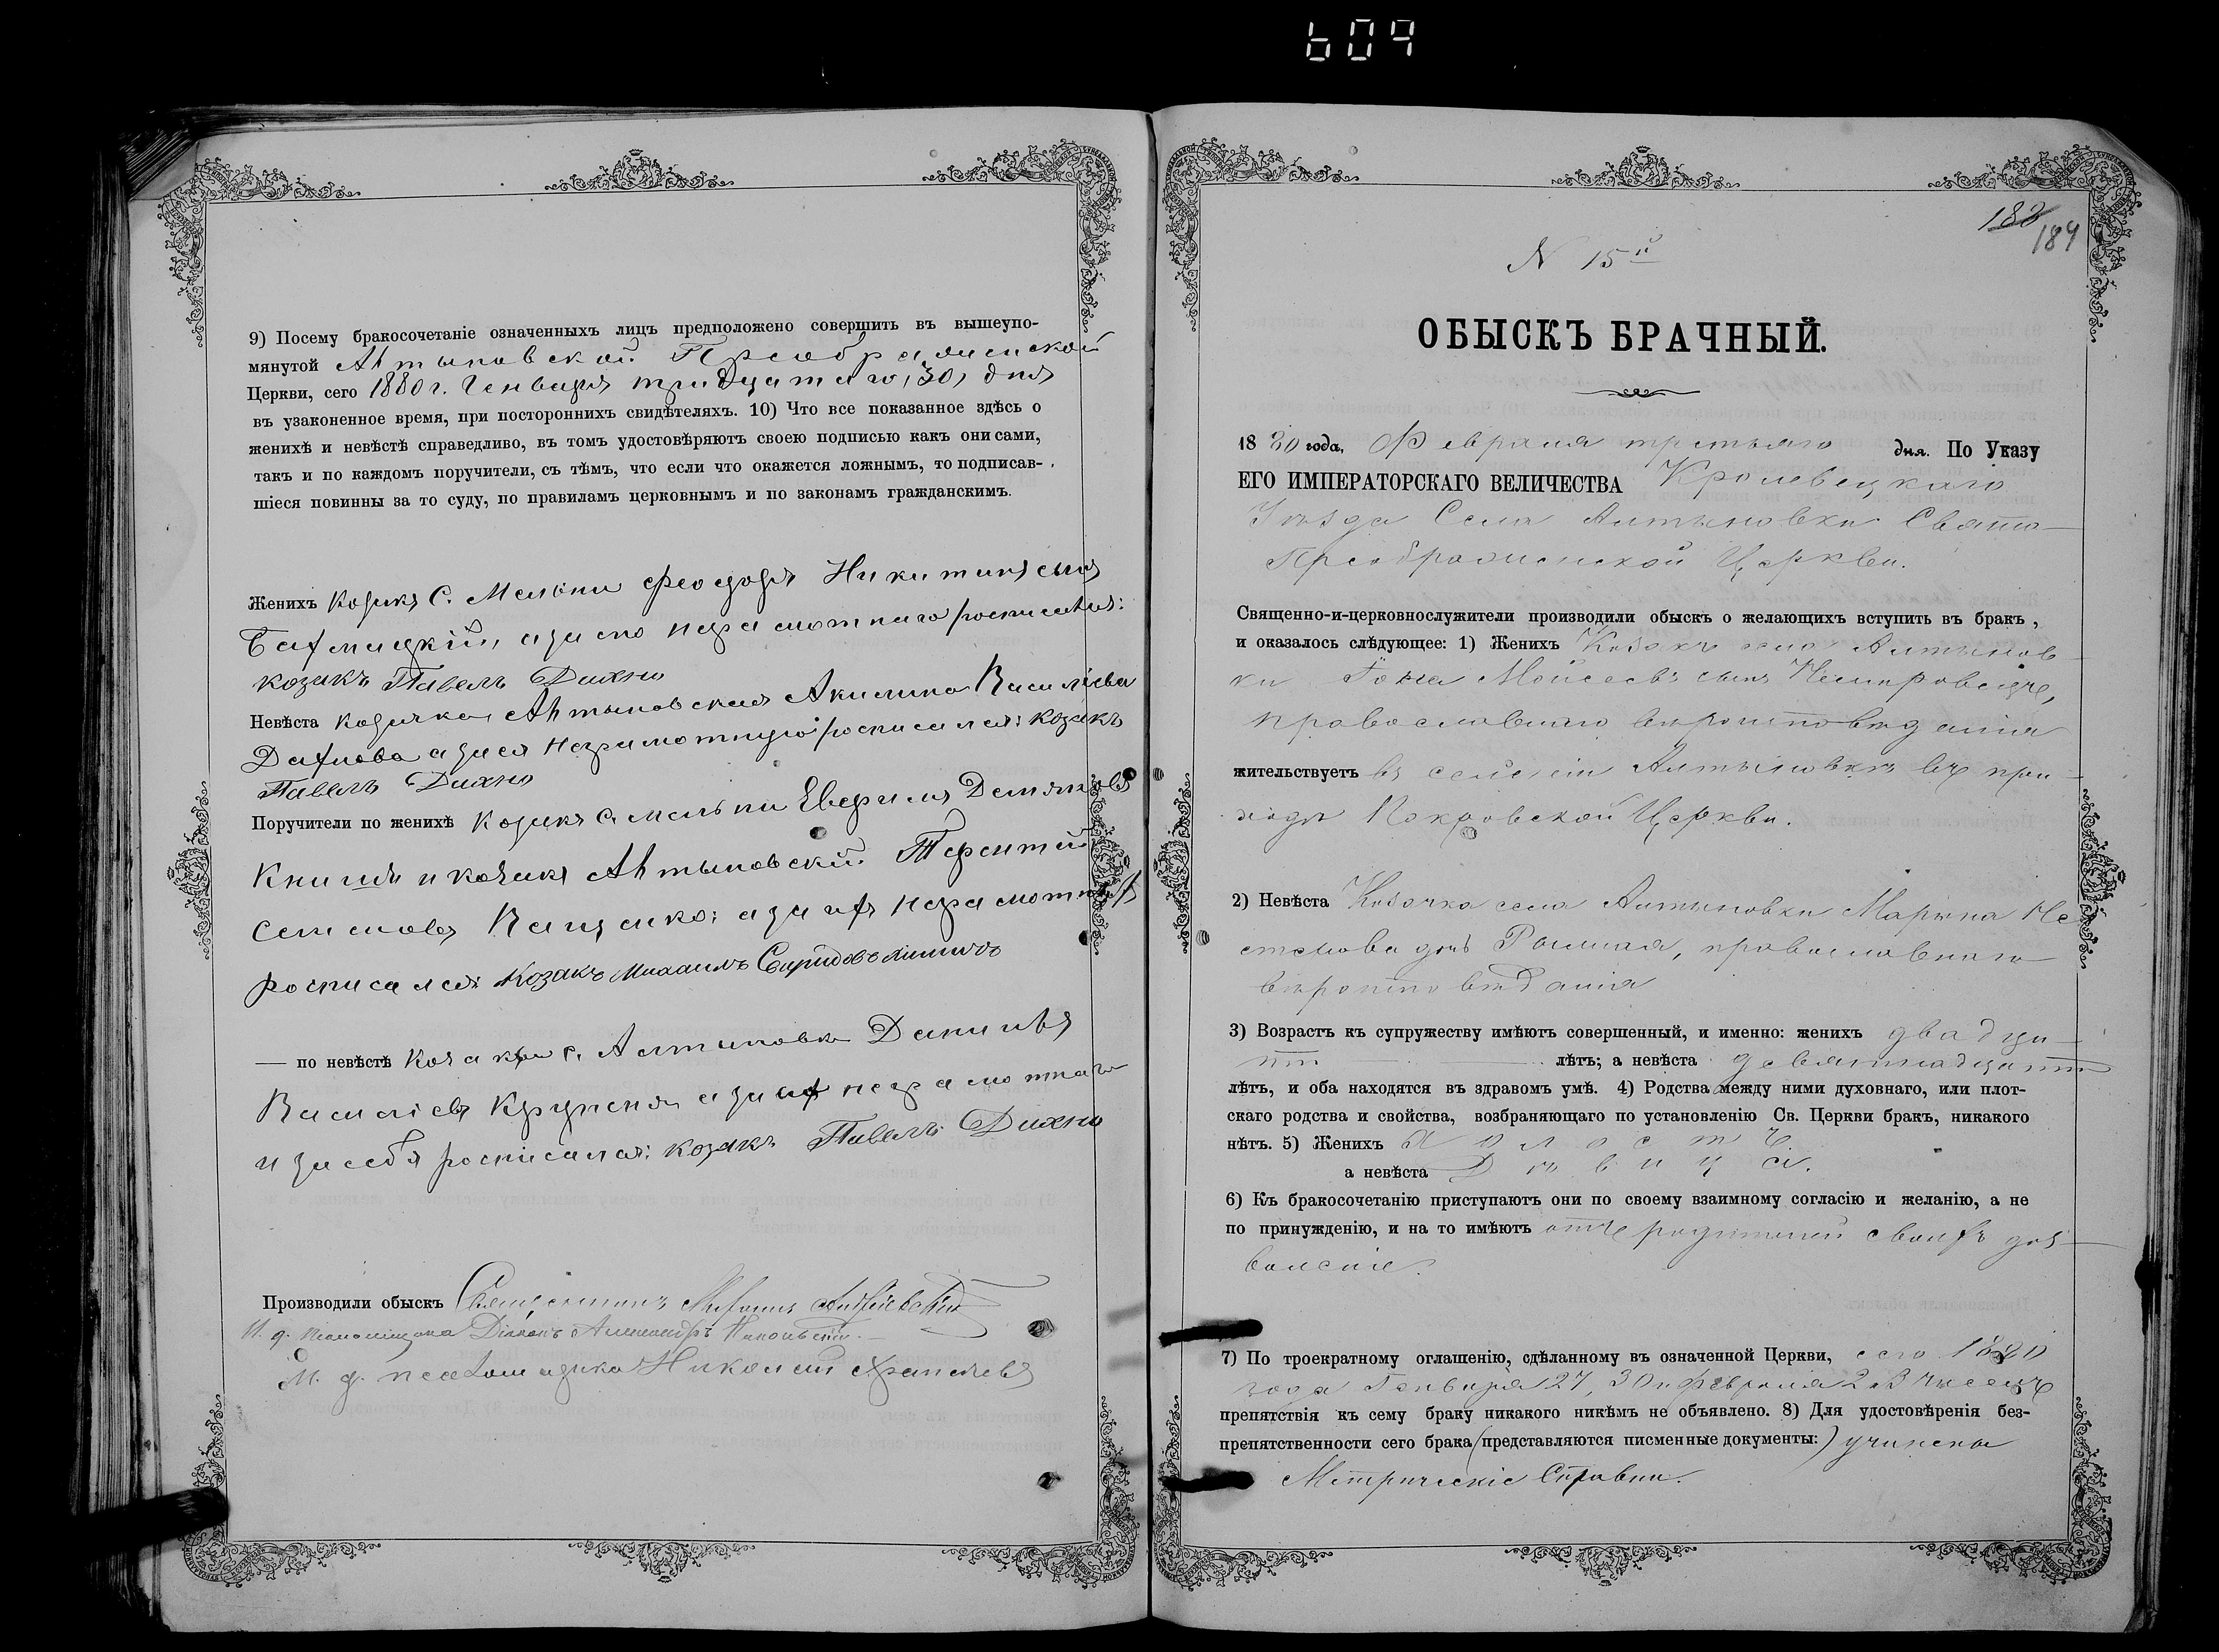 609
9) Посему бракосочетаніе означенныхъ лицъ предположено совершить въ вышеупо-
мянутой Алтыновской Преображенской
Церкви, сего 1880 г. Генваря тридцатаго, 30, дня
въ узаконенное время, при постороннихъ свидѣтеляхъ. 10) Что все показанное здѣсь о
женихѣ и невѣстѣ справедливо, въ томъ удостовѣряютъ своею подписью какъ они сами,
такъ и по каждомъ поручители, съ тѣмъ, что если что окажется ложнымъ, то подписав-
шіеся повинны за то суду, по правиламъ церковнымъ и по законамъ гражданскимъ.
Женихъ козакъ с. Мельни Феодоръ Никитинъ сынъ
а за его неграмотнаго росписался:
козакъ Павелъ Дихно
Невѣста козачка Алтыновская Акилина Василіева
Дахнова а за ея неграмотную росписался: козакъ
Павелъ Дихно
Поручители по женихѣ козакъ с. Мельни Демяновъ
и козакъ Алтыновскій Терентій
Семеновъ Ващенко: а за ихъ неграмотныхъ
росписался: козакъ Михаилъ Свиридовъ
— по невѣстѣ с. Алтыновки
Василіевъ а за неграмотнаго
и за себя росписался: козакъ Павелъ Дихно
Производили обыскъ Священникъ
И. д. псаломщика Діаконъ Александръ
И. д. псаломщика Николай
188
189
N 15й
ОБЫСКЪ БРАЧНЫЙ.
1880 года, Февраля третьяго дня. По Указу
ЕГО ИМПЕРАТОРСКАГО ВЕЛИЧЕСТВА Кролевецкаго
Уѣзда Села Алтыновки Свято-
Преображенской Церкви.
Священно-и-церковнослужители производили обыскъ о желающихъ вступить въ бракъ,
и оказалось слѣдующее: 1) Женихъ Козакъ села Алтынов-
ки Мойсеевъ сынъ
православнаго вѣроисповѣданія
жительствуетъ въ селеніи Алтыновкѣ въ при-
ходѣ Покровской Церкви.
2) Невѣста Козачка села Алтыновки Марина Не-
стерова дочь православнаго
вѣроисповѣданія
3) Возрастъ къ супружеству имѣютъ совершенный, и именно: женихъ двадца-
ти лѣтъ; а невѣста девятнадцати
лѣтъ, и оба находятся въ здравомъ умѣ. 4) Родства между ними духовнаго, или плот-
скаго родства и свойства, возбраняющаго по установленію Св. Церкви бракъ, никакого
нѣтъ. 5) Женихъ Холостъ
а невѣста Дѣвица.
6) Къ бракосочетанію приступаютъ они по своему взаимному согласію и желанію, а не
по принужденію, и на то имѣютъ отъ родителей своихъ доз-
воленіе.
7) По троекратному оглашенію, сдѣланному въ означенной Церкви, сего 1880
года Генваря 27, 30 и Февраля 2 числъ
препятствія къ сему браку никакого никѣмъ не объявлено. 8) Для удостовѣренія без-
препятственности сего брака (представляются писменные документы:) учинены
Метрическіе Справки.